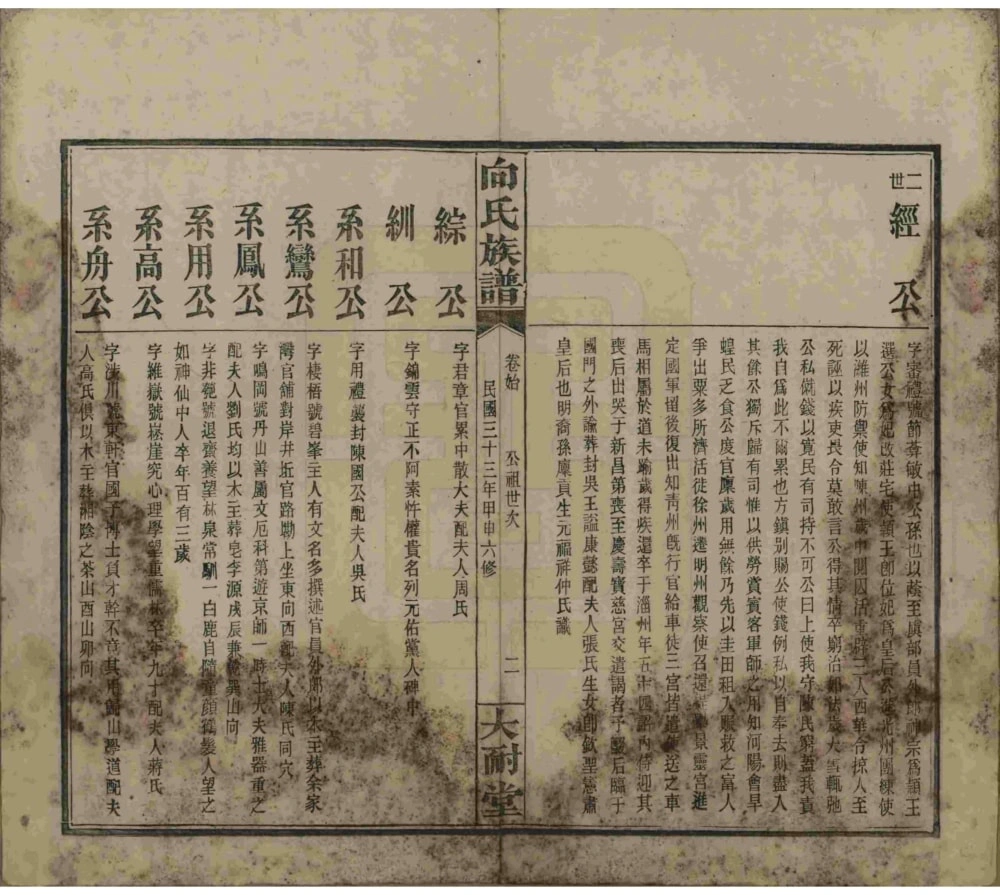 二世
經公
字宗禮號節莽敏中公孫也以蔭至虞部員外郎神宗為頴王
選公女為妃改莊宅使頴王卽位妃為皇后公遷光州團練使
以濰州防禦使知陳州歲中開囚活重辟二人西華令掠人至
死誣以疾吏畏令莫敢言公得其情卒窮治如法歲大雪輒弛
公私僦錢以寬民有司持不可公曰上使我守陳民窮蓋我責
我自為此不爾累也方鎮别賜公使錢例私以自奉去則盡入
其餘公獨斥歸有司惟以供勞賞賓客軍師之用知河陽會旱
蝗民乏食公度官廩歲用無餘乃先以圭田租入賑救之富人
爭出粟多所濟活徙徐州遷明州觀察使召還景靈宮進
定國軍留後復出知青州旣行官給車徒三宮皆遣使送之車
馬相屬於道未踰歲得疾還卒于淄州年五十四詔內侍迎其
喪后出哭于新昌第喪至慶壽寶慈宮交遣謁者予醫后臨于
國門之外諭葬封吳王謚康懿配夫人張氏生女卽欽聖憲肅
皇后也明裔孫廩貢生元福祥仲氏識
向氏族譜
卷始 公祖世次
民國三十三年甲申六修
二
大耐堂
綜公
字君章官累中散大夫配夫人周氏
紃公
字錦雲守正不阿素忤權貴名列元佑黨人碑中
系和公
字用禮襲封陳國公配夫人吳氏
系鸞公
字棲梧號碧峯主人有文名多撰述官員外郎以木主葬余家
灣官舖對岸井坵官路坳上坐東向西配夫人陳氏同穴
系鳳公
字鳴岡號丹山善屬文厄科第遊京師一時士大夫雅器重之
配夫人劉氏均以木主葬皂李源戌辰兼乾巽山向
系用公
字非羆號退齋養望林泉常馴一白鹿自隨童顏鶴髮人望之
如神仙中人卒年百有三歲
系高公
字維嶽號崧崖究心理學望重儒林卒年九十配夫人蔣氏
系舟公
字涉川號東軒官國子博士負才幹不竟其用歸山學道配夫
人高氏俱以木主葬湘陰之茶山酉山卯向